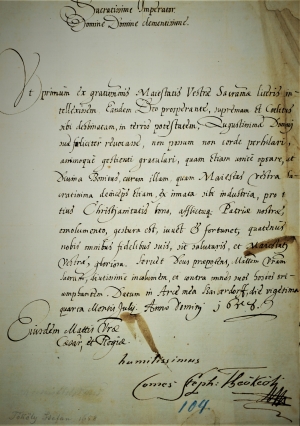 Sacratissime Imperator
Domine Domine clementissime.
Ut primum ex gratiosis Maiestatis Vestræ Sacratmæ literis in
tellexissem Eandem Deo prosperante, supremam et Coelitus
sibi destinatam, in terris potestatem, Augustissimæ Domui
suæ foeliciter revocasse, non possum non corde perhilari,
animoque gestienti gratulari, quam etiam unice opto, ut
Divina Bonitas, curam illam, quam Maiestas Vestra Sa
cratissima deinceps etiam, ex innata sibi industria, pro to
tius Christianitatis bono, afflictæque Patriæ nostræ,
emolumento, gestura est, iuvet & fortunet, quatenus
nobis omnibus fidelibus suis, sit salutaris, et Maiestati
Vestræ, gloriosa. Servet Deus præpotens, Mattem Vram
Sacram, diutissime incolumem, et contra suos hostes tri
umphantem. Datum in Arce mea die vigesima
quarta Mensis July. Anno Domini 1658.
Eiusdem Mattis Vræ
Cæsar. et Regiæ
humillissimus
Comes Steph. Theököly
104.